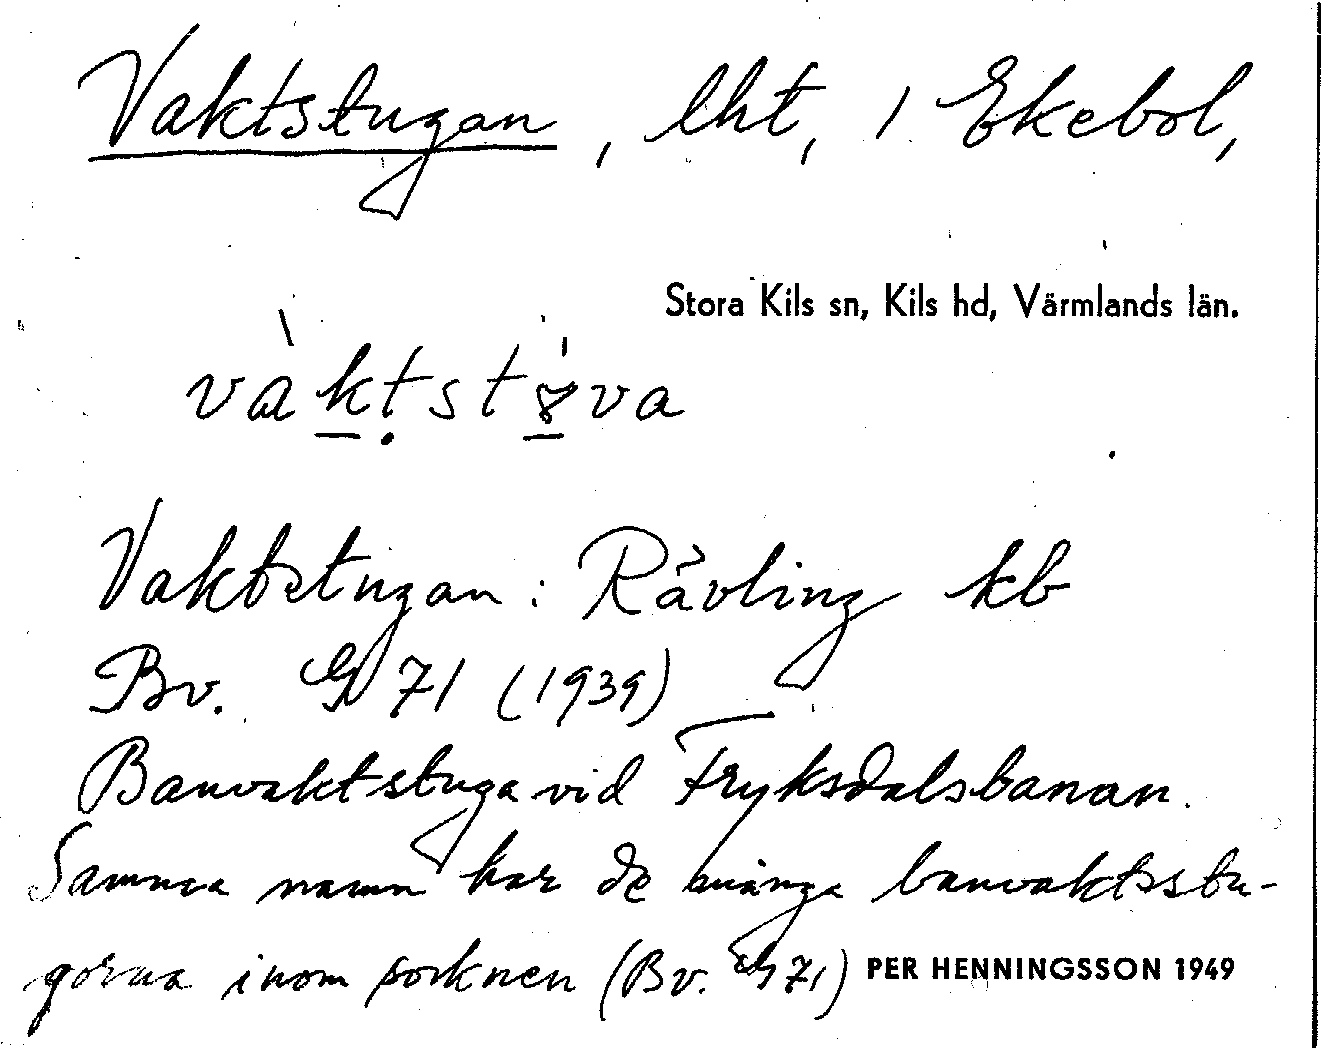 Vaktstugan, lht, i Ekebol,
Stora Kils sn, Kils hd, Värmlands län.
vàktstva
Vaktstugan: Rävling kb
Bv. G 71 (1939)
Banvaktstuga vid Fryksdalsbanan.
Samma namn har de många banvaktsstu-
gorna inom socknen (Bv. G 71) PER HENNINGSSON 1949